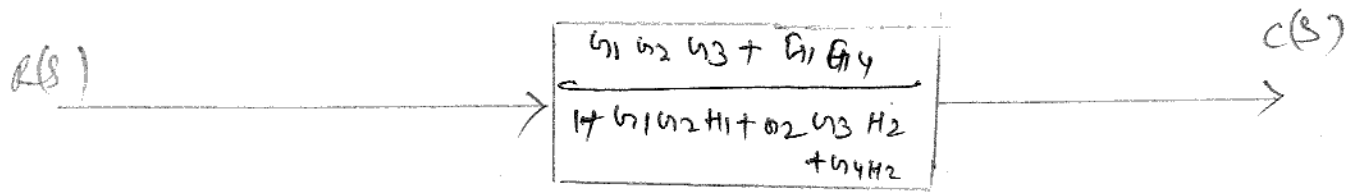 C(S)
G1 G2 G3 + G1 G4
R(S)
1+ G1G2H1+G2 G3 H2
+G4H2